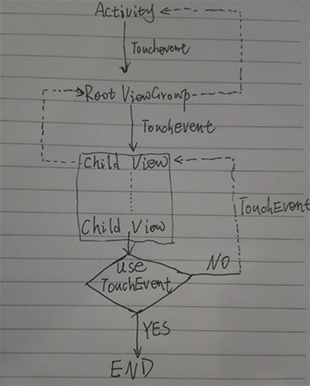 Activity
Touchevent
Root ViewGroup
Touchevent
Child View
TouchEvent
Child View
use
TouchEvent
NO
YES
END